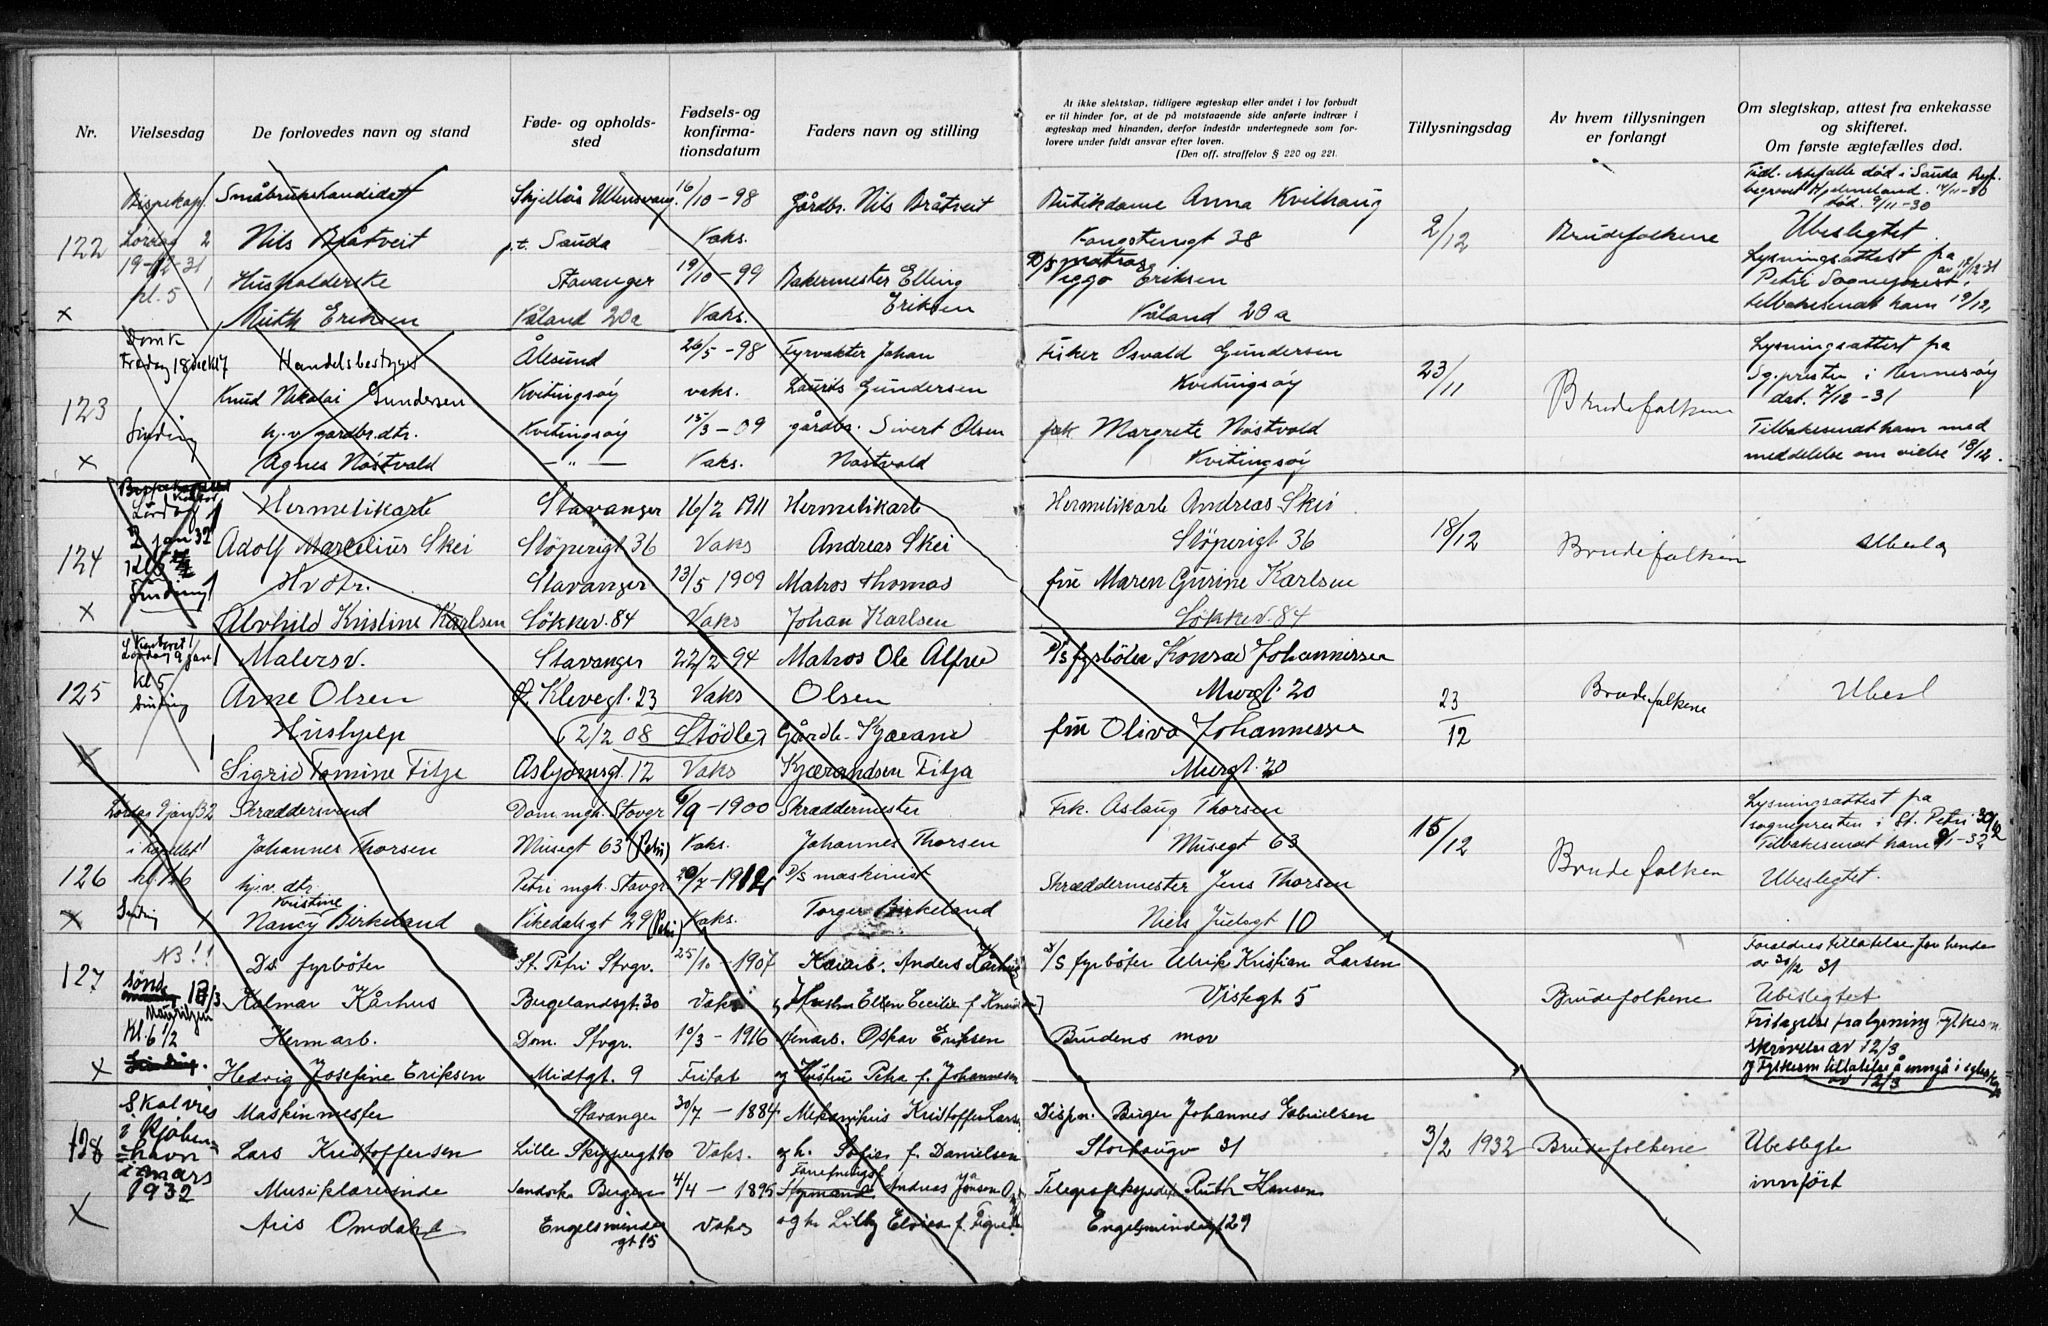 Nr.
Vielsesdag
De forlovedes navn og stand
Føde- og opholds-
sted
Fødsels- og
konfirma-
tionsdatum
Faders navn og stilling
At ikke slektskap, tidligere ægteskap eller andet i lov forbudt
er til hinder for, at de på motstaaende side anførte indtrær i
ægteskap med hinanden, derfor indestår undertegnede som for-
lovere under fuldt ansvar efter loven.
(Den off. straffelov § 220 og 221.
Tillysningsdag
Av hvem tillysningen
er forlangt
Om slegtskap, attest fra enkekasse
og skifteret.
Om første ægtefælles død.
122
Bispekap.
Lørdag 2
19-12-31
kl. 5
x
Småbrukskandidat
Nils Bråtveit
Husholderske
Ruth Eriksen
Ullensvang
p.t. Sauda
Stavanger
Våland 20a
16/10-98
Vaks.
19/10-99
Vaks.
Gårdbr. Nils Bråtveit
Bakermester Elling
Eriksen
Butikdame Anna Kvilhaug
Kongstensgt 38
D/S matros
Viggo Eriksen
Våland 20a
2/12
Brudefolkene
død i Sauda
Hjelmeland
død. 9/11-30
Ubeslegtet
Lysningsattest fra
Petri Sogneprest
tilbakesendt ham 19/12,
123
Domk
Fredag 18 des kl 7
Sinding
x
Handelsbestyrer
Knud Nikolai Gundersen
hj.v. gårdbr.dtr.
Agnes Nostvold
Ålesund
Kvitingsøy
Kvitingsøy
— " —
26/5-98
vaks.
15/3-09
Vaks.
Fyrvakter Johan
Laurits Gundersen
gårdbr. Sivert Olsen
Nostvold
Fisker Osvald Gundersen
Kvitingsøy
frk Margrete Nostvold
Kvitingsøy
23/11
Brudefolkene
Lysningsattest fra
Sg.prestn i Rennesøy
dat. 7/12-31
Tilbakesendt ham med
meddelelse om vielse 18/12.
124
Lørdag
2 jan 32
Sinding
x
Hermetikarb
Adolf Marselius Skei
Hv dtr.
Alvhild Kristine Karlsen
Stavanger
Støperigt 36
Stavanger
Søkkev. 84
16/2 1911
Vaks
13/5 1909
Vaks
Hermetikarb
Andreas Skei
Matros Thomas
Johan Karlsen
Hermetikarb Andreas Skei
Støperigt 36
fru Maren Gurine Karlsen
Søkkev. 84
18/12
Brudefolken
125
Lørdag 9 jan
kl 5
Sinding
x
Malersv.
Arne Olsen
Hushjelp
Sigrid Tomine Fitja
Stavanger
Ø. Klevegt. 23
2/2 08
Asbjørnsgt. 12
22/2 94
Vaks
Vaks
Matros Ole Alfred
Olsen
Gårdb. Kjærand
Kjærandsen Fitja
D/S fyrbøter Konrad Johannessen
Murgt. 20
fru Oliva Johannessen
Murgt. 20
23/12
Brudefolkene
Ubesl
126
Lørdag 9 jan 32
i kapellet
Sinding
x
Skræddersvend
Johannes Thorsen
hj.v. dtr
Kristine
Nancy Birkeland
Dom. mgh. Stavgr
Musegt 63 (Petri)
Petri mgh. Stavgr
Vikedalsgt 29 (Petri)
6/9-1900
Vaks.
20/7-1912
Vaks.
Skræddermester
Johannes Thorsen
D/S maskinist
Torger Birkeland
Frk. Aslaug Thorsen
Musegt 63
Skræddermester Jens Thorsen
Niels Juelsgt 10
15/12
Brudefolken
Lysningsattest fra
sognepresten i St. Petri 30/12
Tilbakesendt ham 9/1-32
Ubeslegtet.
127
NB!!
sønd
13/3
Kl. 6 1/2
x
Ds. fyrbøter
Kolmar Kårhus
Hermarb.
Hedvig Josefine Eriksen
St. Petri Stvgr.
Bugelandsgt. 30
Dom. Stvgr.
Midtgt. 9
25/10-1907
Vaks
10/3-1916
Fritat
Kaiarb. Anders Kårhus
Ellen Cecilie f. Knudsen
Oskar Eriksen
og Hustru Petra f. Johannesen
D/S fyrbøter Ulrik Kristian Larsen
Vistegt 5
Brudens mor
Brudefolkene
Foreldres tillatelse for hende
Ubeslegtet
Fritagelse fra lysning Fylkesm.
skrivelse av 12/3
av 12/3
128
Skal vies
i Kjøben-
havn
i mars
1932
x
Maskinmester
Lars Kristoffersen
Musiklærerinde
Aris Omdal
Stavanger
Lille Skippergt 10
Sandviken Bergen
Engelsminde
gt 15
30/7-1884
Vaks.
4/4-1895
Vaks
Mekanikus Kristoffer Larsen
og h. Sofie f. Danielsen
Forretningsf.
Styrmand Andreas Jonsen
og h. Lilly
Disp. Birger Johannes Gabrielsen
Storhaugv 31
Telegrafekspedit Ruth Hansen
Engelsmindegt 29
3/2 1932
Brudefolkene
Ubeslegte
innført